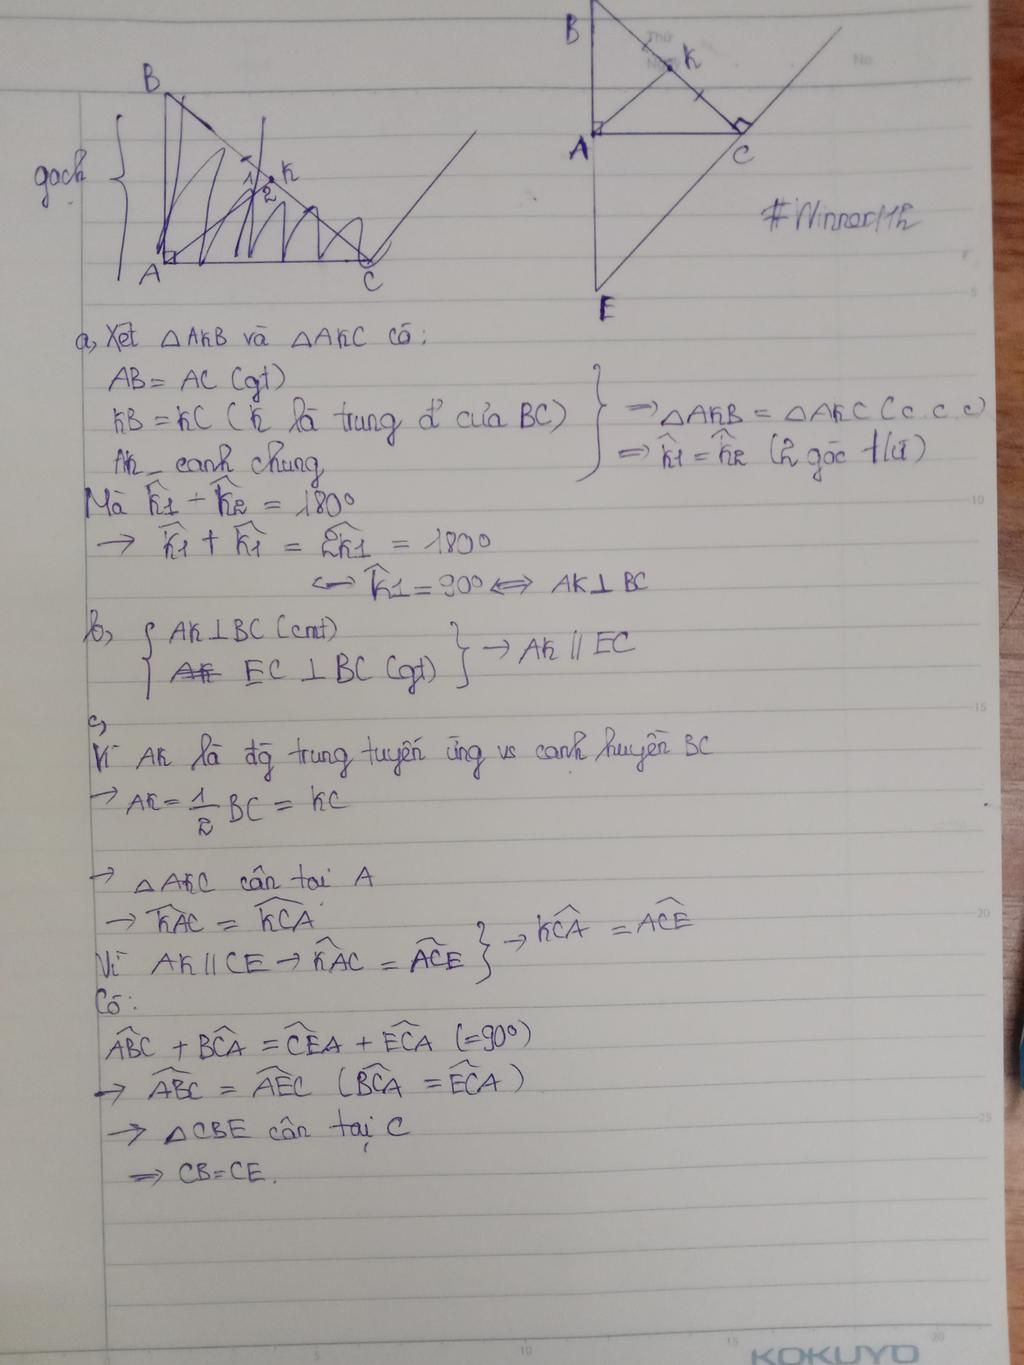 B
K
1
2
gạch
A
C
B
K
A
C
E
Thứ
Ngày
No
#Winner
a, Xét △AKB và △AKC có:
AB = AC (gt)
KB = KC (K là trung đ' của BC)
AK _ cạnh chung
⇒ △AKB = △AKC (c.c.c)
⇒ K̂1 = K̂2 (2 góc t/ứ)
Mà K̂1 + K̂2 = 180°
→ K̂1 + K̂1 = 2K̂1 = 180°
⇔ K̂1 = 90° ⇔ AK ⊥ BC
b, { AK ⊥ BC (cmt)
EC ⊥ BC (gt) } → AK // EC
c,
Vì AK là đg trung tuyến ứng vs cạnh huyền BC
→ AK = 1/2 BC = KC
→ △AKC cân tại A
→ K̂AC = K̂CA
Vì AK // CE → KÂC = AĈE } → KĈA = AĈE
Có:
AB̂C + BĈA = CÊA + EĈA (=90°)
→ AB̂C = AÊC (BĈA = EĈA)
→ △CBE cân tại C
⇒ CB = CE.
5
10
15
20
25
5
10
15
20
KOKUYO